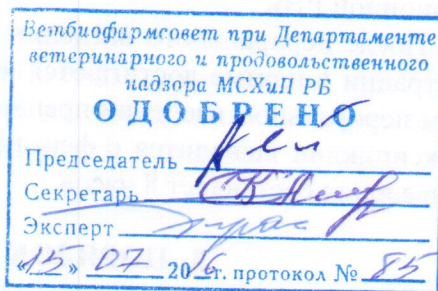 Ветбиофармсовет при Департаменте
ветеринарного и продовольственного
надзора МСХиП РБ
ОДОБРЕНО
Председатель
Секретарь
Эксперт
«15» 07 2016г. протокол № 85